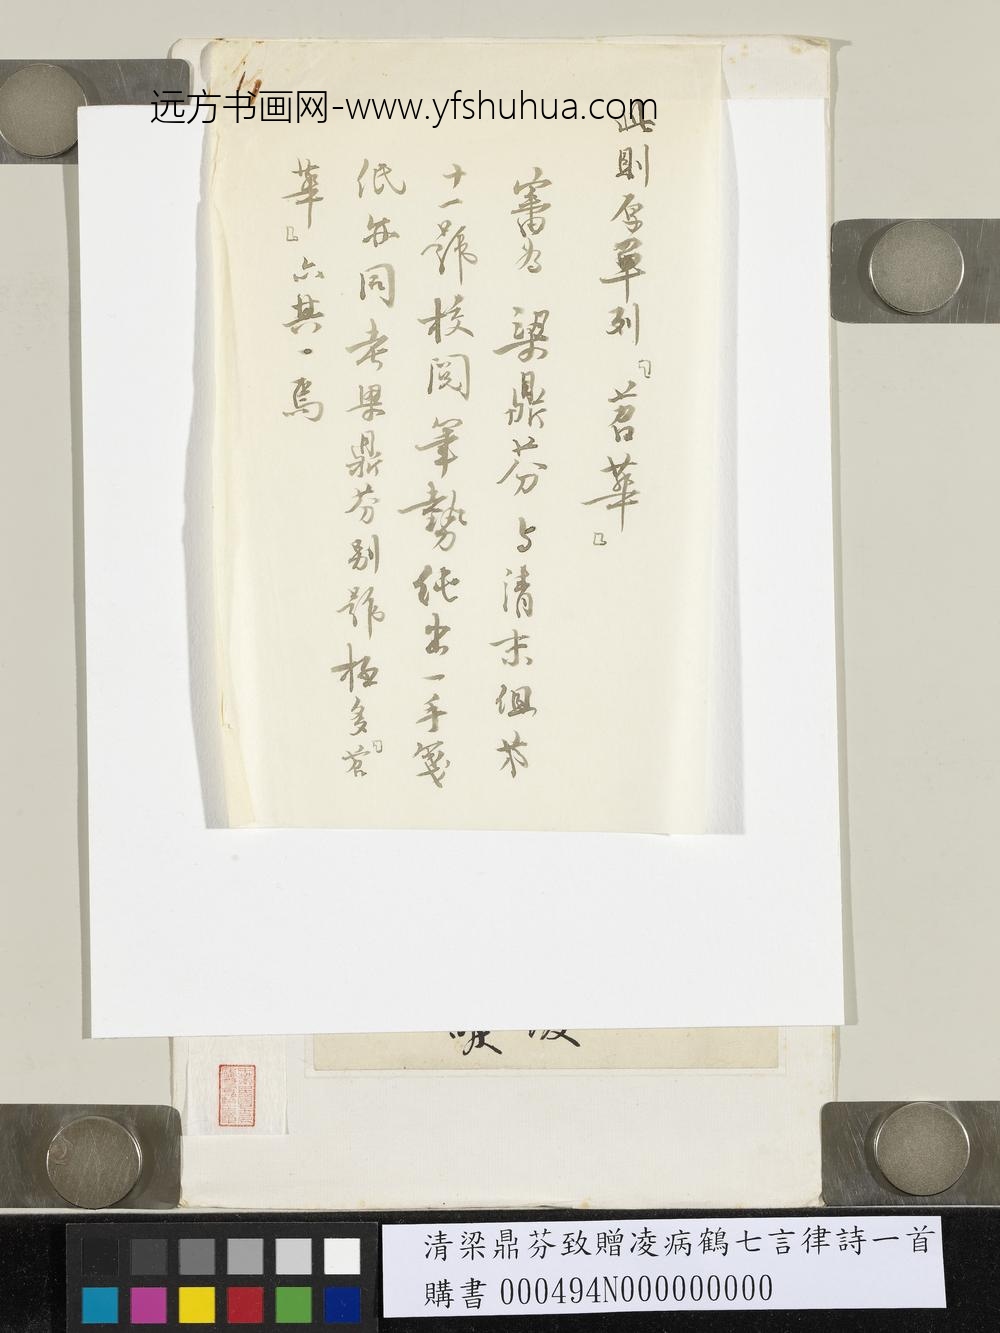 远方书画网-www.yfshuhua.com
此則原單列『苕華』
審為梁鼎芬与清末俎
十一號校閱筆勢純出一手箋
低亦同老梁鼎芬别號極多『苕
華』六其。焉
清梁鼎芬致贈凌病鶴七言律詩一首
購書 000494N000000000